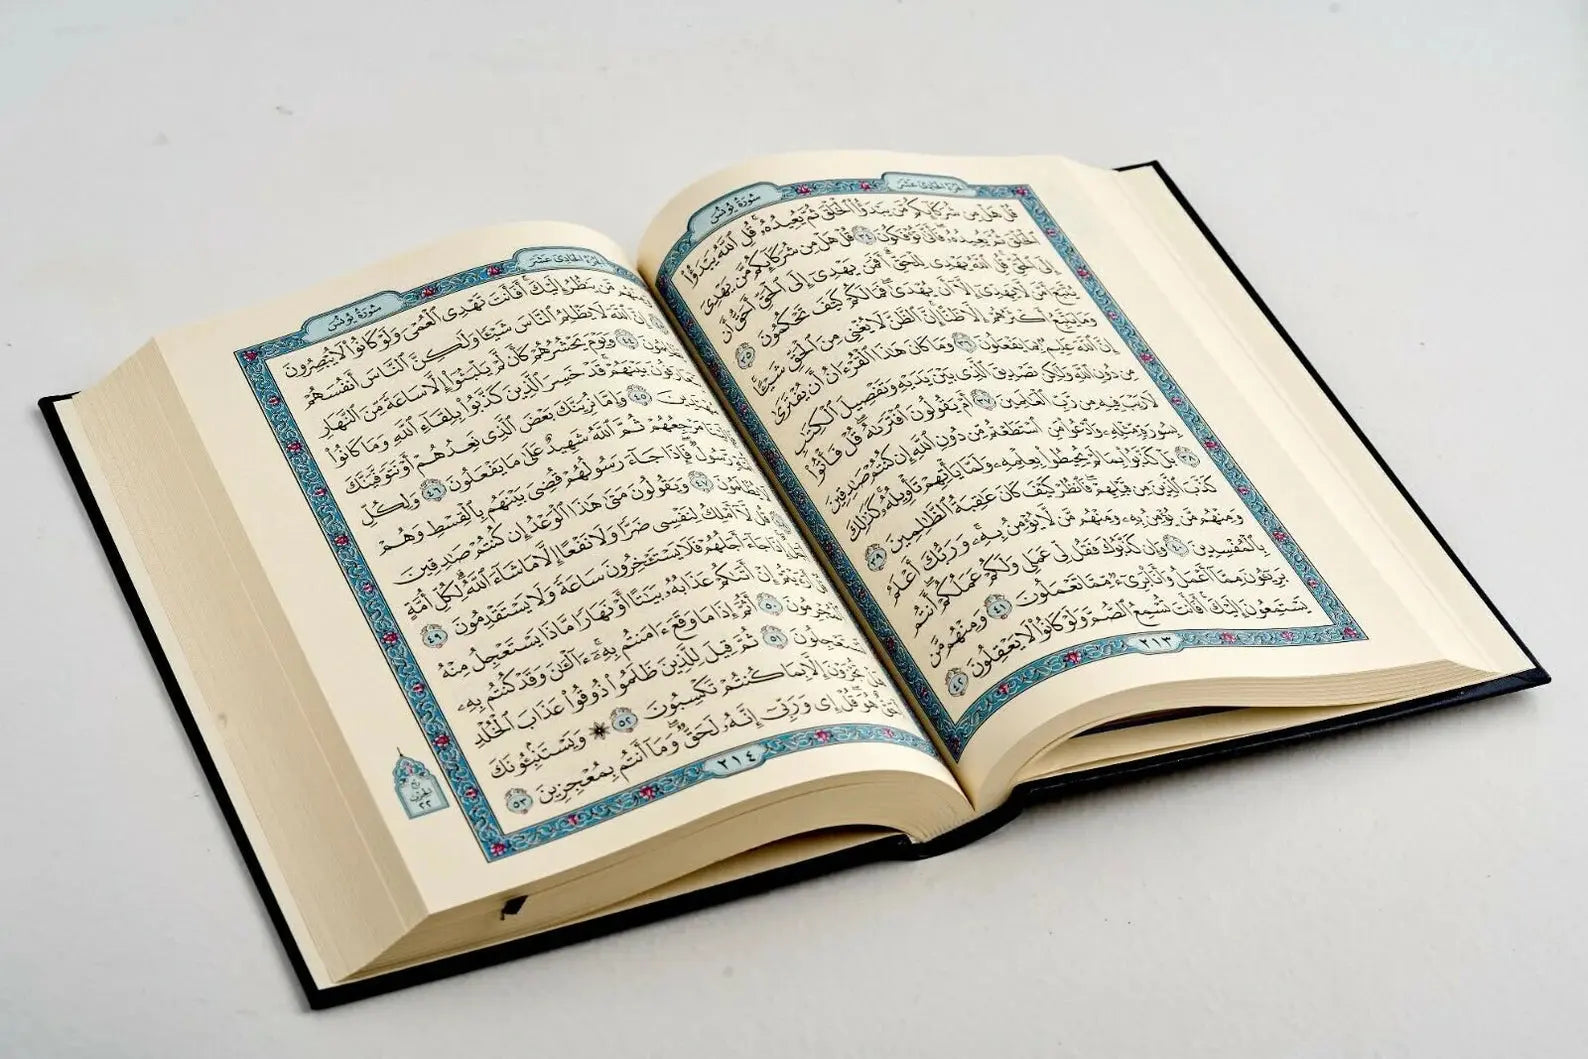 الجُزءُ الحَادِى عَشَر
سُورَةُ يُونُسَ
قُلْ هَلْ مِن شُرَكَآئِكُم مَّن يَبْدَؤُا۟ ٱلْخَلْقَ ثُمَّ يُعِيدُهُۥ ۚ قُلِ ٱللَّهُ يَبْدَؤُا۟
ٱلْخَلْقَ ثُمَّ يُعِيدُهُۥ ۖ فَأَنَّىٰ تُؤْفَكُونَ ٣٤ قُلْ هَلْ مِن شُرَكَآئِكُم مَّن يَهْدِىٓ
إِلَى ٱلْحَقِّ ۚ قُلِ ٱللَّهُ يَهْدِى لِلْحَقِّ ۗ أَفَمَن يَهْدِىٓ إِلَى ٱلْحَقِّ أَحَقُّ أَن
يُتَّبَعَ أَمَّن لَّا يَهِدِّىٓ إِلَّآ أَن يُهْدَىٰ ۖ فَمَا لَكُمْ كَيْفَ تَحْكُمُونَ ٣٥
وَمَا يَتَّبِعُ أَكْثَرُهُمْ إِلَّا ظَنًّا ۚ إِنَّ ٱلظَّنَّ لَا يُغْنِى مِنَ ٱلْحَقِّ شَيْـًٔا ۚ
إِنَّ ٱللَّهَ عَلِيمٌۢ بِمَا يَفْعَلُونَ ٣٦ وَمَا كَانَ هَٰذَا ٱلْقُرْءَانُ أَن يُفْتَرَىٰ
مِن دُونِ ٱللَّهِ وَلَٰكِن تَصْدِيقَ ٱلَّذِى بَيْنَ يَدَيْهِ وَتَفْصِيلَ ٱلْكِتَٰبِ
لَا رَيْبَ فِيهِ مِن رَّبِّ ٱلْعَٰلَمِينَ ٣٧ أَمْ يَقُولُونَ ٱفْتَرَىٰهُ ۖ قُلْ فَأْتُوا۟
بِسُورَةٍ مِّثْلِهِۦ وَٱدْعُوا۟ مَنِ ٱسْتَطَعْتُم مِّن دُونِ ٱللَّهِ إِن كُنتُمْ صَٰدِقِينَ
٣٨ بَلْ كَذَّبُوا۟ بِمَا لَمْ يُحِيطُوا۟ بِعِلْمِهِۦ وَلَمَّا يَأْتِهِمْ تَأْوِيلُهُۥ ۚ كَذَٰلِكَ
كَذَّبَ ٱلَّذِينَ مِن قَبْلِهِمْ ۖ فَٱنظُرْ كَيْفَ كَانَ عَٰقِبَةُ ٱلظَّٰلِمِينَ ٣٩
وَمِنْهُم مَّن يُؤْمِنُ بِهِۦ وَمِنْهُم مَّن لَّا يُؤْمِنُ بِهِۦ ۚ وَرَبُّكَ أَعْلَمُ
بِٱلْمُفْسِدِينَ ٤٠ وَإِن كَذَّبُوكَ فَقُل لِّى عَمَلِى وَلَكُمْ عَمَلُكُمْ ۖ أَنتُم
بَرِيٓـُٔونَ مِمَّآ أَعْمَلُ وَأَنَا۠ بَرِىٓءٌ مِّمَّا تَعْمَلُونَ ٤١ وَمِنْهُم مَّن
يَسْتَمِعُونَ إِلَيْكَ ۚ أَفَأَنتَ تُسْمِعُ ٱلصُّمَّ وَلَوْ كَانُوا۟ لَا يَعْقِلُونَ ٤٢
٢١٣
الجُزءُ الحَادِى عَشَر
سُورَةُ يُونُسَ
وَمِنْهُم مَّن يَنظُرُ إِلَيْكَ ۚ أَفَأَنتَ تَهْدِى ٱلْعُمْىَ وَلَوْ كَانُوا۟ لَا يُبْصِرُونَ
إِنَّ ٱللَّهَ لَا يَظْلِمُ ٱلنَّاسَ شَيْـًٔا وَلَٰكِنَّ ٱلنَّاسَ أَنفُسَهُمْ
٤٤ وَيَوْمَ يَحْشُرُهُمْ كَأَن لَّمْ يَلْبَثُوٓا۟ إِلَّا سَاعَةً مِّنَ ٱلنَّهَارِ
يَتَعَارَفُونَ بَيْنَهُمْ ۚ قَدْ خَسِرَ ٱلَّذِينَ كَذَّبُوا۟ بِلِقَآءِ ٱللَّهِ وَمَا كَانُوا۟
مُهْتَدِينَ ٤٥ وَإِمَّا نُرِيَنَّكَ بَعْضَ ٱلَّذِى نَعِدُهُمْ أَوْ نَتَوَفَّيَنَّكَ
مَرْجِعُهُمْ ثُمَّ ٱللَّهُ شَهِيدٌ عَلَىٰ مَا يَفْعَلُونَ ٤٦ وَلِكُلِّ
رَّسُولٌ ۖ فَإِذَا جَآءَ رَسُولُهُمْ قُضِىَ بَيْنَهُم بِٱلْقِسْطِ وَهُمْ
لَا يُظْلَمُونَ ٤٧ وَيَقُولُونَ مَتَىٰ هَٰذَا ٱلْوَعْدُ إِن كُنتُمْ صَٰدِقِينَ
قُل لَّآ أَمْلِكُ لِنَفْسِى ضَرًّا وَلَا نَفْعًا إِلَّا مَا شَآءَ ٱللَّهُ ۗ لِكُلِّ أُمَّةٍ
إِذَا جَآءَ أَجَلُهُمْ فَلَا يَسْتَـْٔخِرُونَ سَاعَةً ۖ وَلَا يَسْتَقْدِمُونَ ٤٩
قُلْ أَرَءَيْتُمْ إِنْ أَتَىٰكُمْ عَذَابُهُۥ بَيَٰتًا أَوْ نَهَارًا مَّاذَا يَسْتَعْجِلُ مِنْهُ
ٱلْمُجْرِمُونَ ٥٠ أَثُمَّ إِذَا مَا وَقَعَ ءَامَنتُم بِهِۦٓ ۚ ءَآلْـَٰٔنَ وَقَدْ كُنتُم بِهِۦ
تَسْتَعْجِلُونَ ٥١ ثُمَّ قِيلَ لِلَّذِينَ ظَلَمُوا۟ ذُوقُوا۟ عَذَابَ ٱلْخُلْدِ
تُجْزَوْنَ إِلَّا بِمَا كُنتُمْ تَكْسِبُونَ ٥٢ ۞ وَيَسْتَنۢبِـُٔونَكَ
أَحَقٌّ هُوَ ۖ قُلْ إِى وَرَبِّىٓ إِنَّهُۥ لَحَقٌّ ۖ وَمَآ أَنتُم بِمُعْجِزِينَ ٥٣
الحِزْب
٢٢
٢١٤